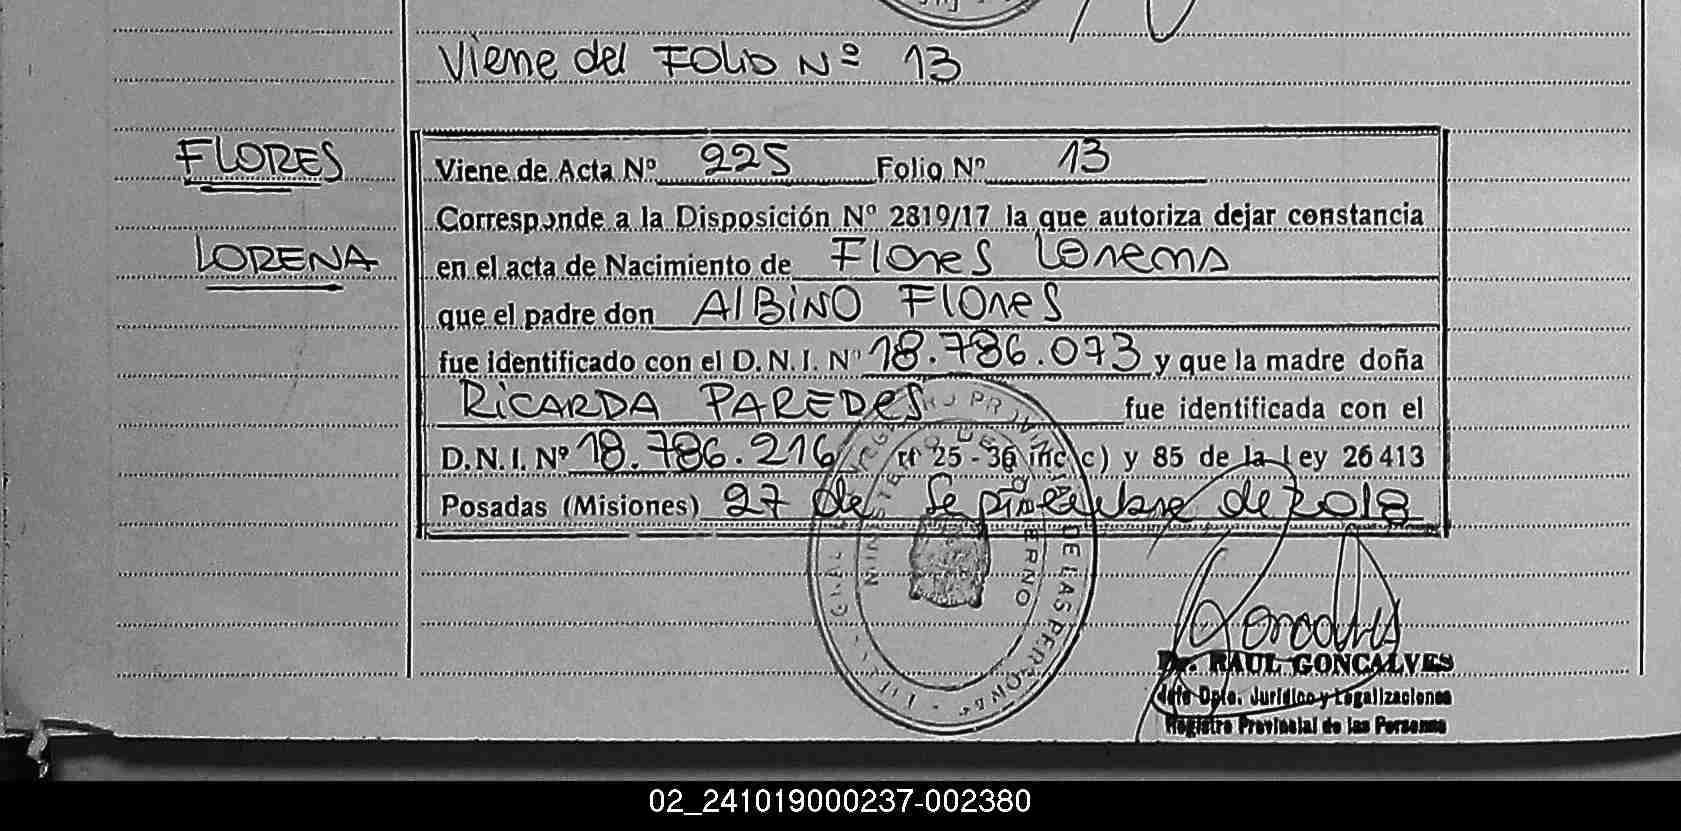 Viene del FOLIO Nº 13
FLORES
LORENA
Viene de Acta Nº 225 Folio Nº 13
Corresponde a la Disposición Nº 2819/17 la que autoriza dejar constancia
en el acta de Nacimiento de Flores Lorena
que el padre don AlBiNO Flores
fue identificado con el D.N.I. Nº 18.786.073 y que la madre doña
RiCARDA PAREDES fue identificada con el
D.N.I. Nº 18.786.216 rt 25 - 36 inc c) y 85 de la Ley 26413
Posadas (Misiones) 27 de Septiembre de 2018
MINISTERIO DE GOBIERNO
DE LAS PERSONAS
Dr. RAUL GONCALVES
Jefe Dpto. Jurídico y Legalizaciones
Registro Provincial de las Personas
02_241019000237-002380